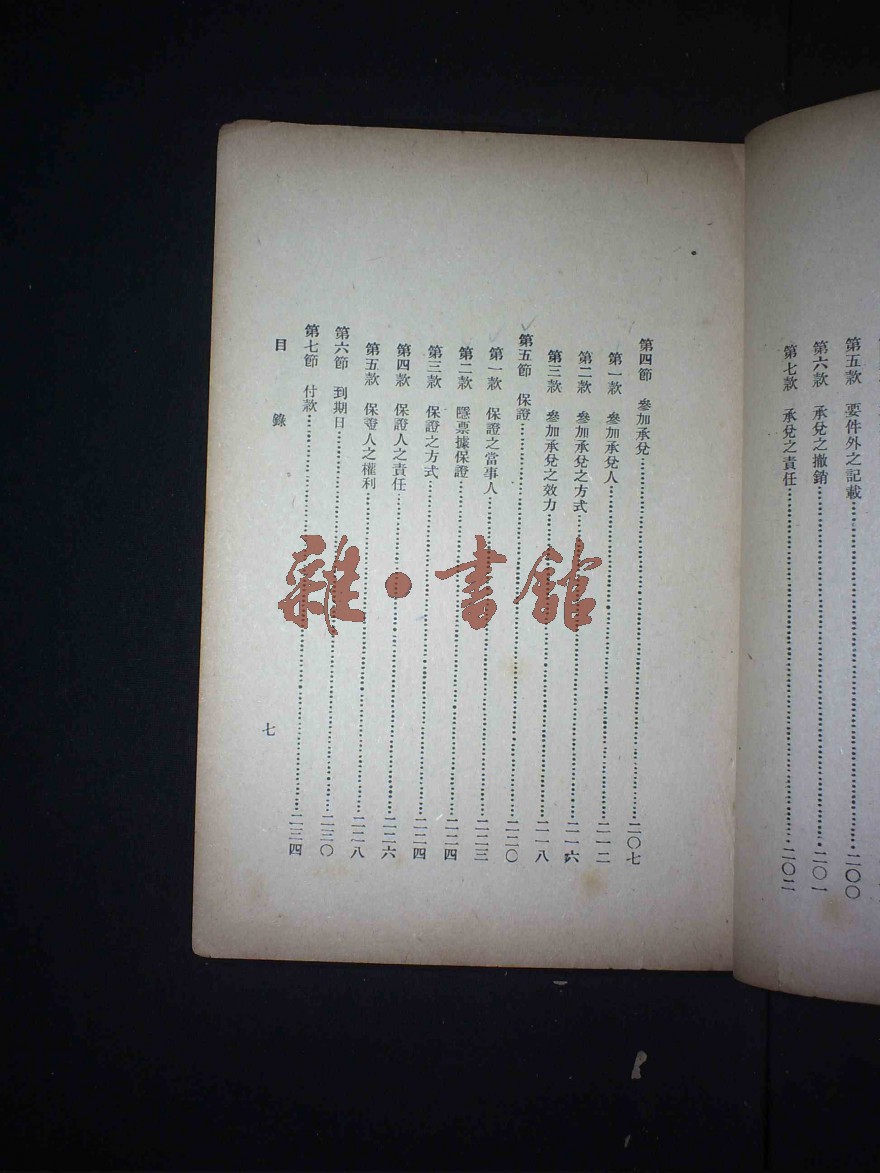 第五款　要件外之記載……二〇〇
第六款　承兌之撤銷……二〇一
第七款　承兌之責任……二〇二
第四節　參加承兌……二〇七
第一款　參加承兌人……二一二
第二款　參加承兌之方式……二一六
第三款　參加承兌之效力……二一八
第五節　保證……二二〇
第一款　保證之當事人……二二三
第二款　隱票據保證……二二四
第三款　保證之方式……二二四
第四款　保證人之責任……二二六
第五款　保證人之權利……二二八
第六節　到期日……二三〇
第七節　付款……二三四
目　錄
七
雜·書館